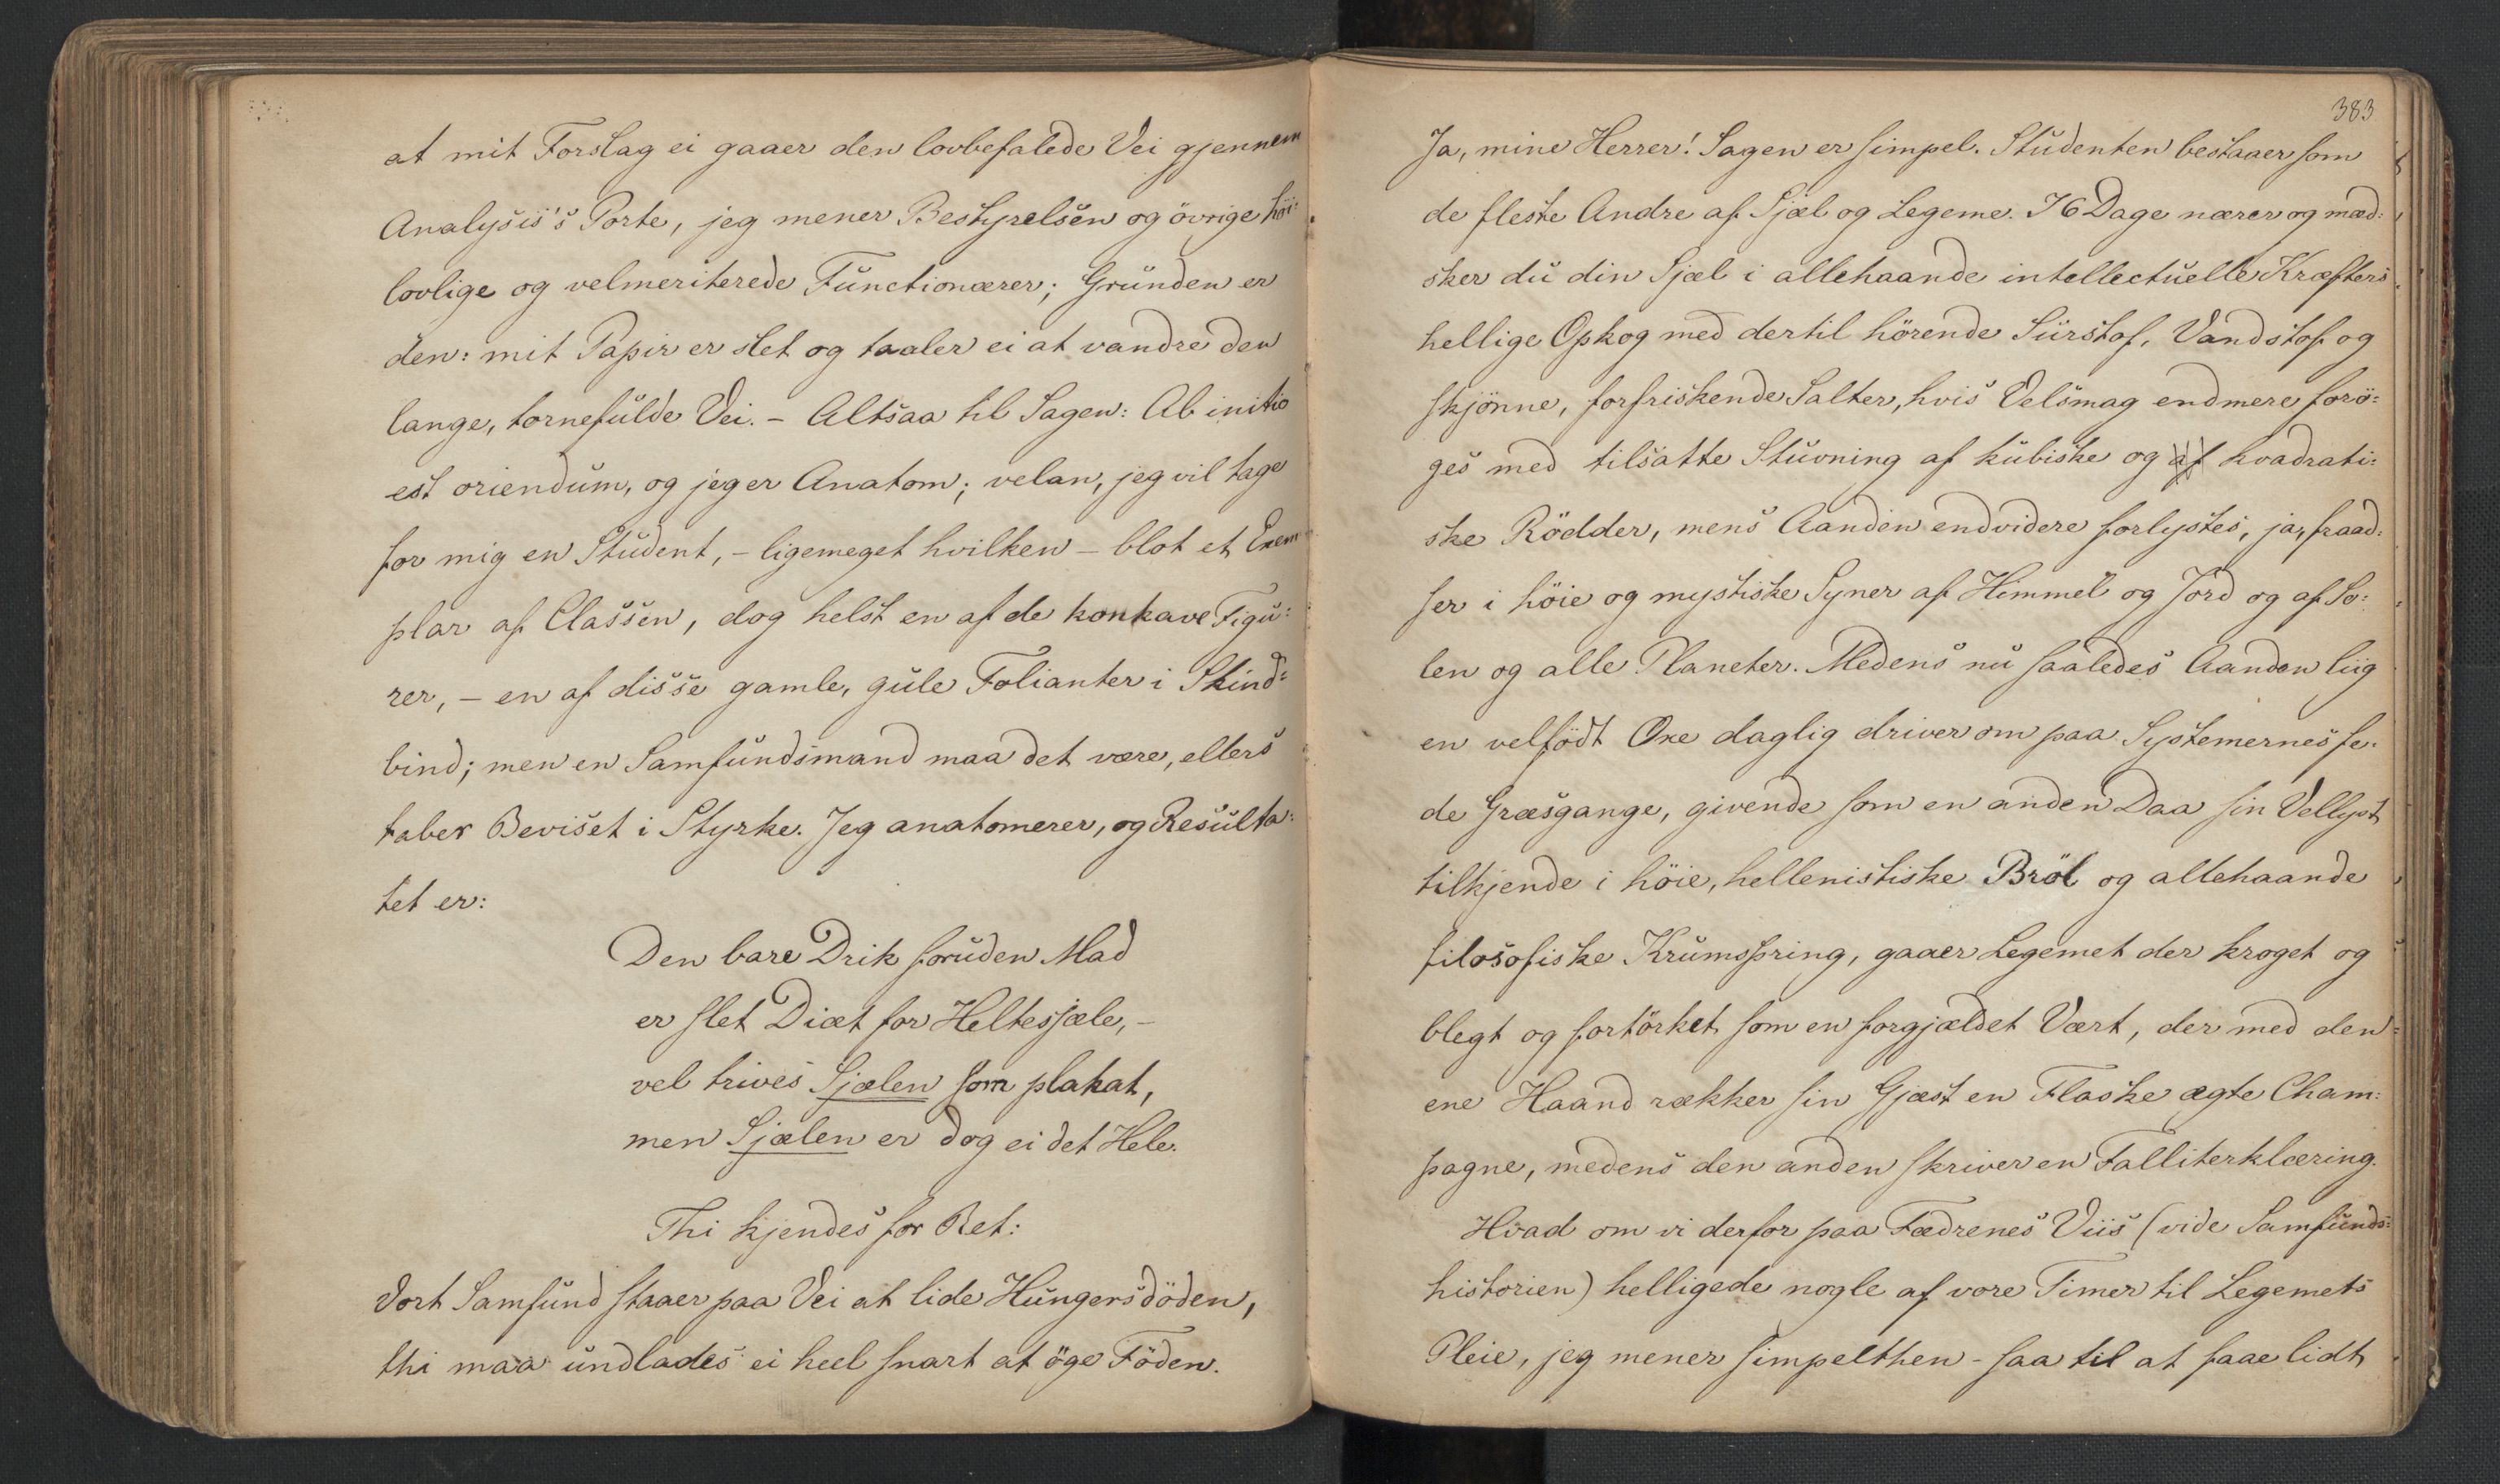 at mit Forslag ei gaaer den lovbefalede Vei gjennem
Analysis's Porte, jeg mener Bestyrelsen og övrige höi-
lovlige og velmeriterede Functionærer; Grunden er
den: mit Papir er slet og taaler ei at vandre den
lange, tornefulde Vei. – Altsaa til Sagen: Ab initio
est oriendum, og jeg er Anatom; velan, jeg vil tage
for mig en Student, – ligemeget hvilken – blot et Exem-
plar af Classen, dog helst en af de konkave Figu-
rer, – en af disse gamle, gule Folianter i Skind-
bind; men en Samfundsmand maa det være, ellers
taber Beviset i Styrke. Jeg anatomerer, og Resulta-
tet er:
Den bare Drik foruden Mad
er slet Diæt for Heltesjæle, –
vel trives Sjælen som plakat,
men Sjælen er dog ei det Hele.
Thi kjendes for Ret:
Vort Samfund staaer paa Vei at lide Hungersdöden,
thi maa undlades ei heel snart at öge Föden.
383
Ja, mine Herrer! Sagen er simpel. Studenten bestaaer som
de fleste Andre af Sjæl og Legeme. I 6 Dage nærer og mæd-
sker du din Sjæl i allehaande intellectuelle Kræfters
hellige Opkog med dertil hörende Suurstof, Vandstof og
skjönne, forfriskende Salter, hvis Velsmag endmere forö-
ges med tilsatte Stuvning af kubiske og af kvadrati-
ske Rödder, mens Aanden endvidere forlystes, ja, fraad-
ser i höie og mystiske Syner af Himmel og Jord og af So-
len og alle Planeter. Medens nu saaledes Aanden liig
en velfödt Oxe daglig driver om paa Systemernes fe-
de Græsgange, givende som en anden Daa sin Vellyst
tilkjende i höie, hellenistiske Bröl og allehaande
filosofiske Krumspring, gaaer Legemet der kroget og
blegt og fortörket som en forgjældet Vært, der med den
ene Haand rækker sin Gjæst en Flaske ægte Cham-
pagne, medens den anden skriver en Falliterklæring.
Hvad om vi derfor paa Fædrenes Viis (vide Samfunds-
historien) helligede nogle af vore Timer til Legemets
Pleie, jeg mener simpelthen – saa til at faae lidt